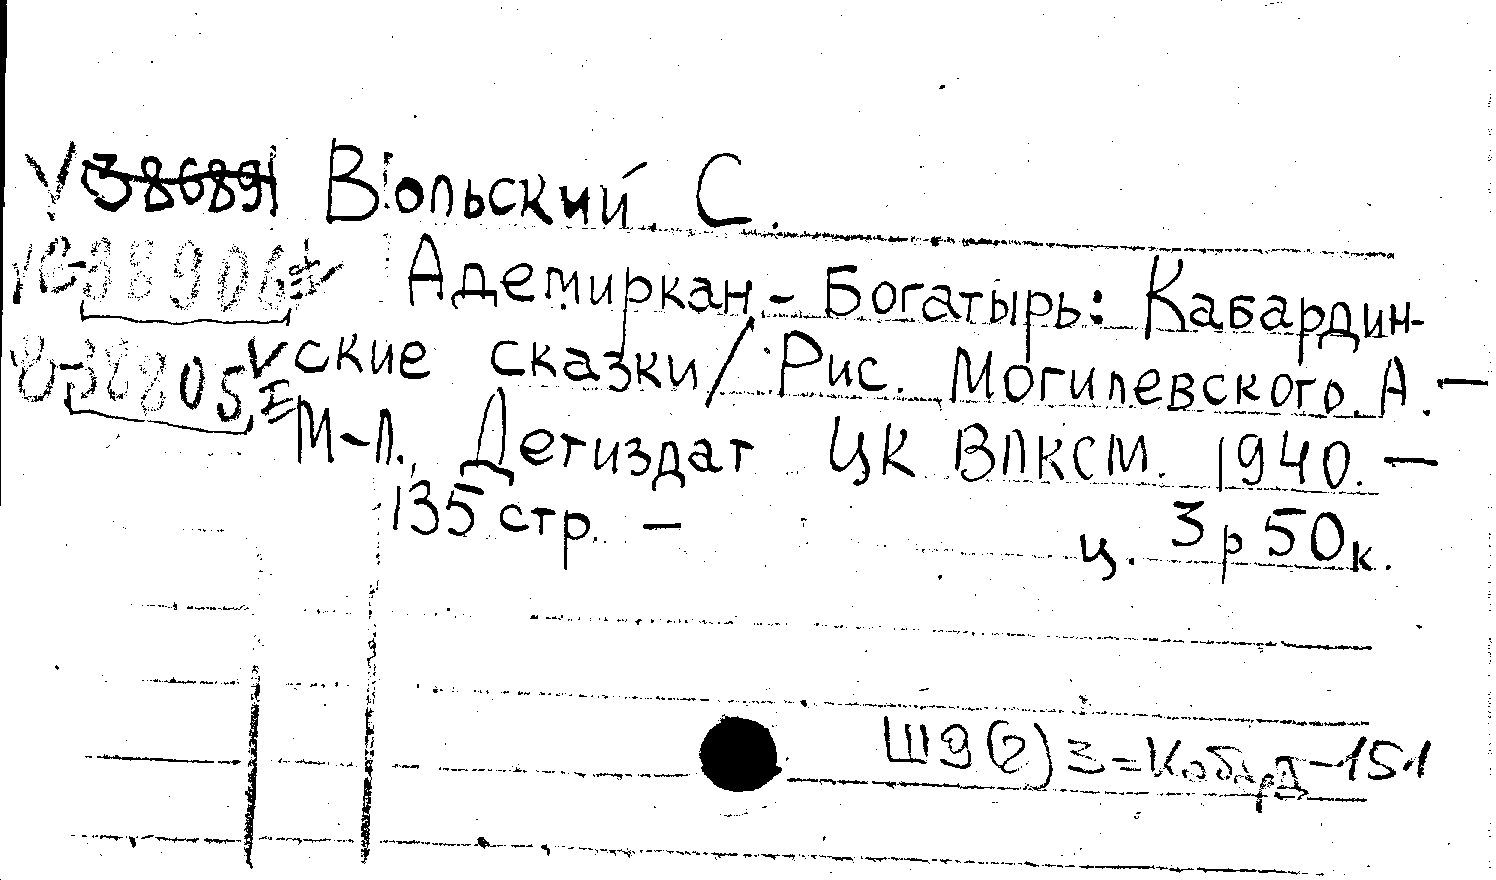 V 38689 Вольский С.
38906 Адемиркан - Богатырь: Кабардин-
38805 ские сказки/ Рис. Могилевского А. —
М-Л., Детиздат ЦК ВЛКСМ. 1940. —
135 стр. — ц. 3р 50к.
Ш9(2)3=Кабард-151